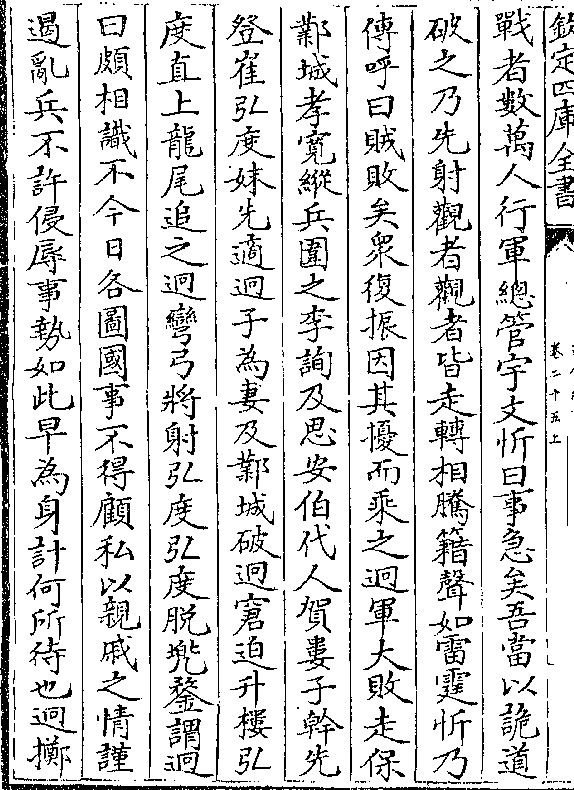 欽定四庫全書
卷二十五上
戰者數萬人行軍總管宇文忻曰事急矣吾當以詭道
破之乃先射觀者觀者皆走轉相騰籍聲如雷霆忻乃
傳呼曰賊敗矣衆復振因其擾而乘之迥軍大敗走保
鄴城孝寛縱兵圍之李詢及思安伯代人賀婁子幹先
登崔弘度妹先適迥子為妻及鄴城破迥窘迫升樓弘
度直上龍尾追之迥彎弓將射弘度弘度脱兠鍪謂迥
曰頗相識不今日各圖國事不得顧私以親戚之情謹
遏亂兵不許侵辱事勢如此早為身計何所待也迥擲